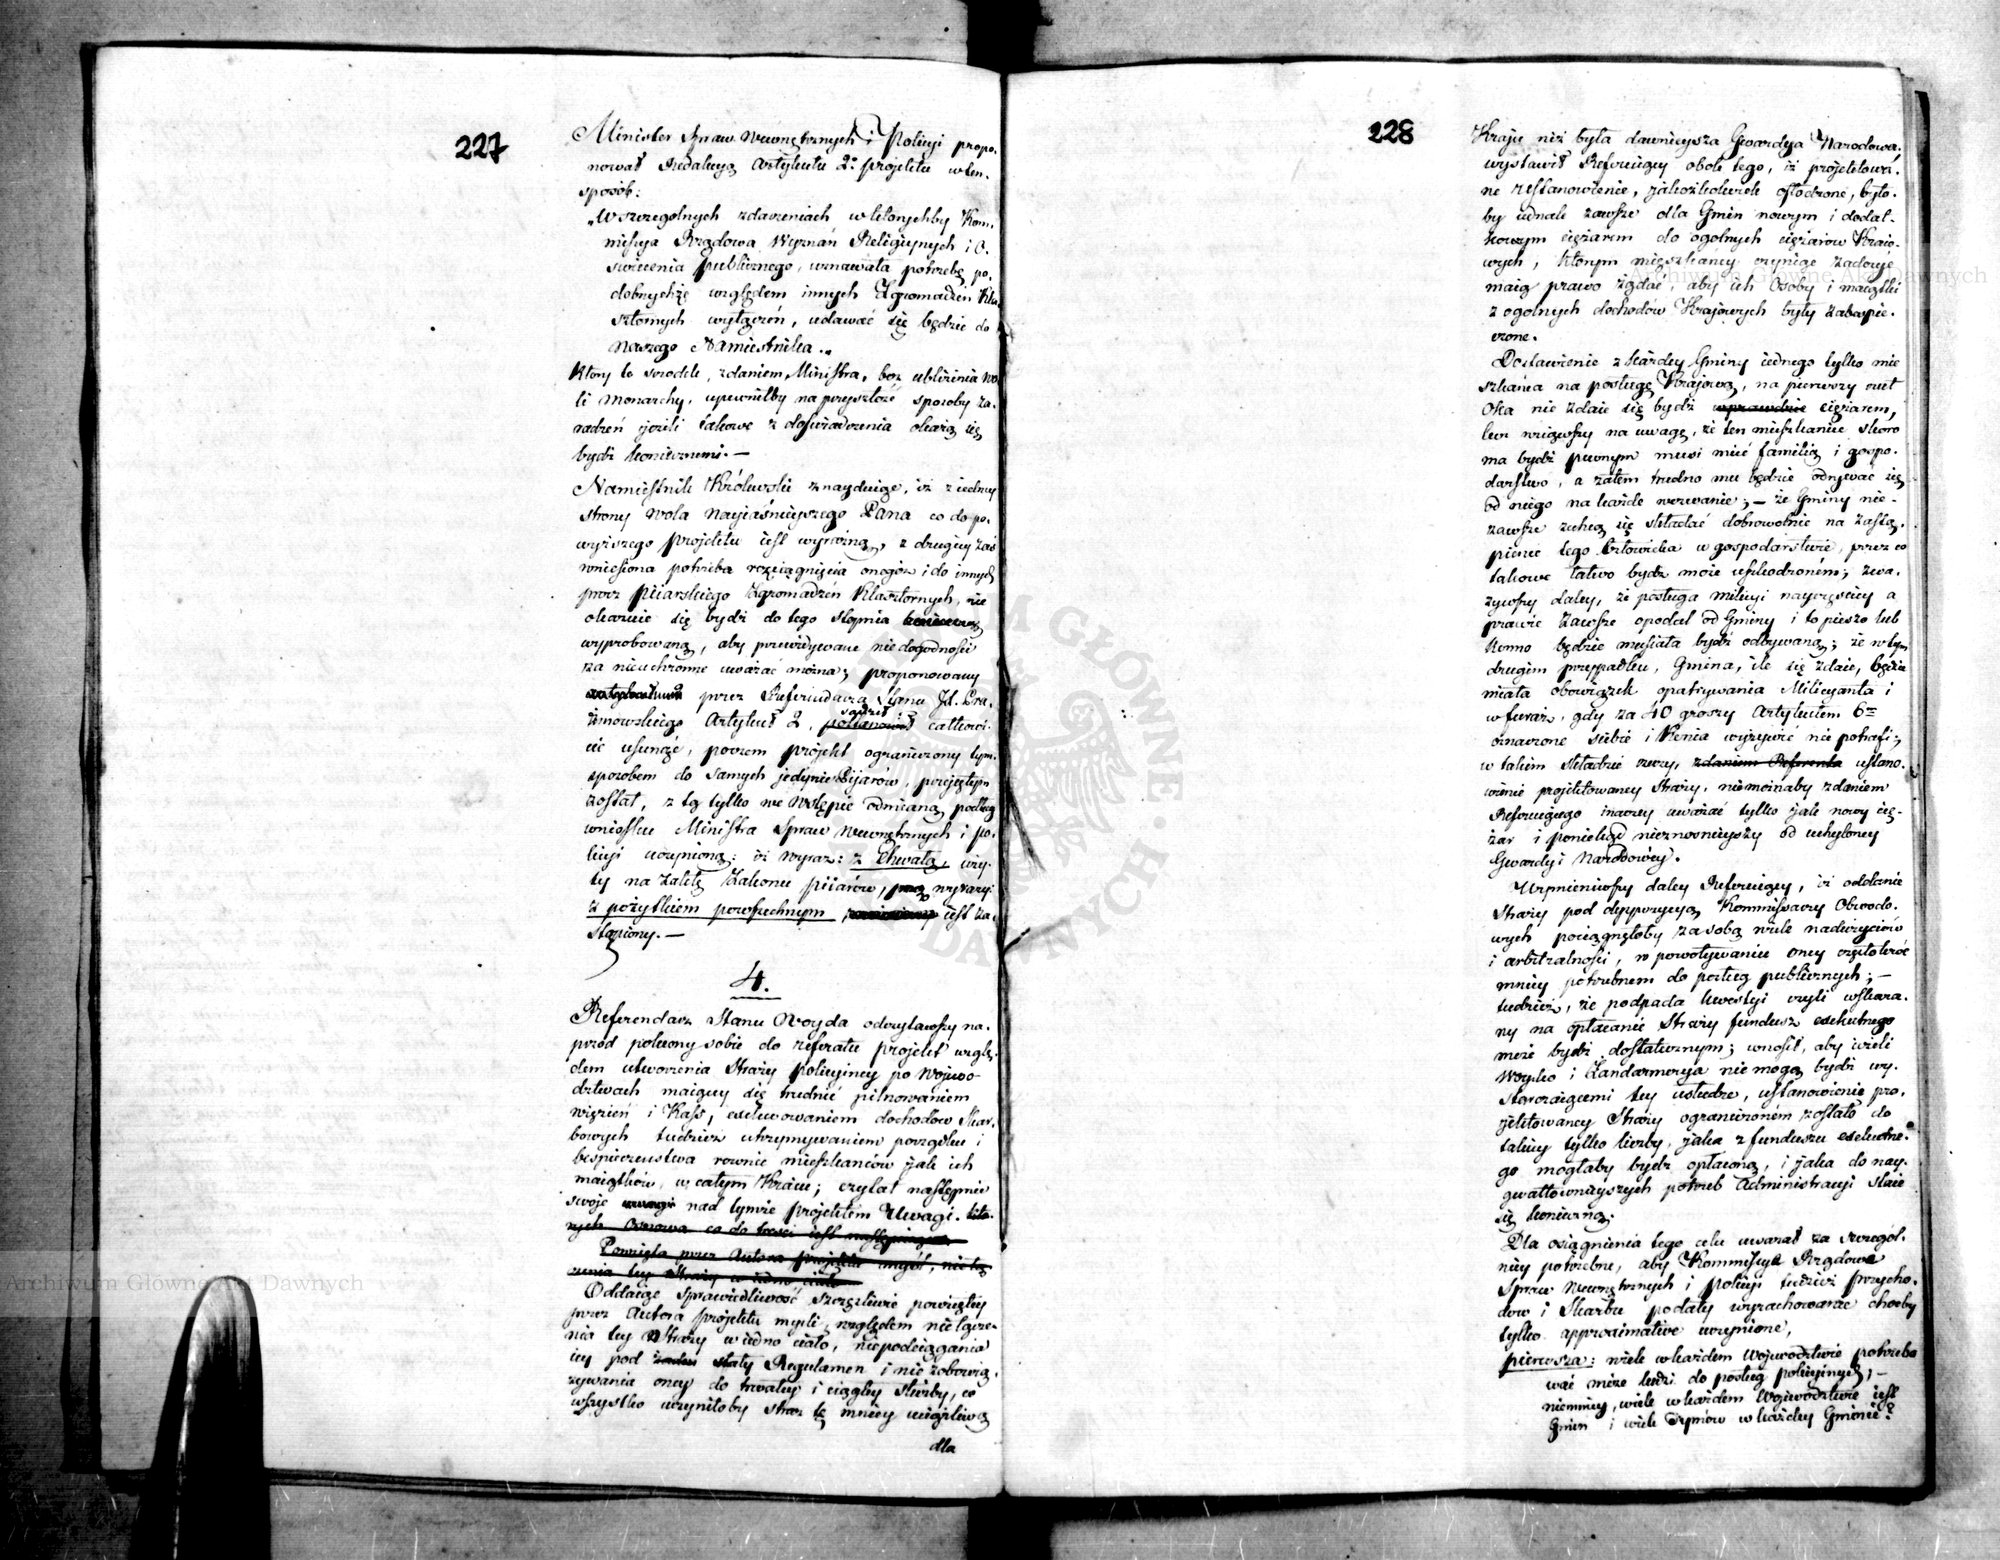 227
Minister Spraw Wewnętrznych i Policyi propo-
nował Redakcyą Artykułu 2º projektu w ten
sposób:
„W szczególnych zdarzeniach w których by Kom-
missya Rządowa Wyznań Religiynych i O-
świecenia publicznego, uznawała potrzebę po-
dobnychże względem innych Zgromadzeń Kla
sztornych wyłączeń, udawać się będzie do
Naszego Namiestnika.„
Który to srodek, zdaniem Ministra, bez ubliżenia wo
li Monarchy, upewniłby na przyszłość sposoby za-
radzeń jeżeli takowe z doświadczenia okażą się
bydź koniecznemi. —
Namiestnik Królewski znayduiąc, iż z iedney
strony Wola Nayiaśnieyszego Pana co do po-
wyższego projektu iest wyraźną, z drugiey zaś
wniesiona potrzeba rozciągnięcia onegoż i do innych
prócz Piiarskiego Zgromadzeń Klasztornych, nie
okazuie się bydź do tego stopnia
wyprobowaną, aby przewidywane niedogodności
za nieuchronne uważać można; proponowany
przez Referendarza Stanu Jd. Bra-
Artykuł 2, postanowił sądził całkowi-
cie usunąć, poczem projekt ograniczony tym
sposobem do samych jedynie Pijarów, przyjętym
został, z tą tylko we Wstępie odmianą podług
wniosku Ministra Spraw Wewnętrznych i Po-
licyi uczynioną: iż wyraz: z Chwałą, uży-
ty na zaletę Zakonu Piiarów, wyrazy:
z pożytkiem powszechnym, iest za-
stąpiony. —
4.
Referendarz Stanu Woyda odczytawszy na-
przód polecony sobie do referatu projekt wzglę-
dem utworzenia Straży policyiney po Wojewo-
dztwach maiącey się trudnić pilnowaniem
więzień i Kass, exekwowaniem dochodów Skar-
bowych tudzież utrzymywaniem porządku i
bespieczeństwa równie mieszkańców jak ich
maiątków, w całym Kraiu; czytał następnie
swoje uwagi nad tymże projektem Uwagi. któ-
rych Osnowa co do treści iest następuiąca
Powzięta przez Autora projektu myśl, nie łą
czenia tey Straży w iedno ciało
Oddaiąc sprawiedliwość szczęśliwie powziętey
przez Autora projektu myśli, względem niełącze-
nia tey Straży w iedno ciało, niepodciągania
iey pod żaden stały Regulamen i nie zobowią-
zywania oney do trwałey i ciągłey służby, co
wszystko uczyniłoby straż tę mniey uciążliwą
dla
228
Kraju niż była dawnieysza Gwardya Narodowa.
wystawił Referuiący obok tego, iż projektowa-
ne restanowienie, jakożkolwiek osłodzone, było-
by iednak zawsze dla Gmin nowym i dodat-
kowym ciężarem do ogólnych ciężarów Kraio-
wych, którym mieszkańcy czyniąc zadosyć
maią prawo żądać, aby ich Osoby i maiątki
z ogólnych dochodów Krajowych były zabespie-
czone.
Dostawienie z każdey Gminy iednego tylko mie
szkańca na posługę Krajową, na pierwszy rzut
Oka nie zdaie się bydź wprawdzie ciężarem,
lecz wziąwszy na uwagę, że ten mieszkaniec skoro
ma bydź pewnym musi mieć familią i gospo-
darstwo, a zatem trudno mu będzie odrywać się
od niego na każde wezwanie; — że Gminy nie-
zawsze zechcą się składać dobrowolnie na zastą-
pienie tego człowieka w gospodarstwie, przez co
takowe łatwo bydź może uszkodzoném; zwa-
żywszy daley, że posługa milicyi nayczęściey a
prawie zawsze opodal od Gminy i to pieszo lub
konno będzie musiała bydź odbywaną; że w tym
drugim przypadku, Gmina, ile się zdaie, będzie
miała obowiązek opatrywania Milicyanta i
w furaż, gdy za 40 groszy Artykułem 6m
oznaczone siebie i Konia wyżywić nie potrafi;
w takim składzie rzeczy, zdaniem Referenta ustano-
wienie projektowaney Straży, niemożnaby zdaniem
Referuiącego inaczey uważać tylko jak nowy cię-
żar i poniekąd nieznośnieyszy od uchyloney
Gwardyi Narodowey.
Wymieniwszy daley Referuiący, iż oddanie
Straży pod dyspozycyą Kommissarzy Obwodo-
wych pociągnęłoby za sobą wiele nadużyciów
i arbitralności, w powoływaniu oney częstokroć
mniey potrzebnem do posług publicznych; —
tudzież, że podpada kwestyi czyli wskaza-
ny na opłacanie Straży fundusz exekutnego
może bydź dostatecznym; wnosił, aby ieżeli
Woysko i Żandarmerya nie mogą bydź wy-
starczaiącemi tey usłudze, ustanowienie pro-
jektowaney Straży ograniczoném zostało do
takiey tylko liczby, jaka z funduszu exekutne-
go mogłaby bydź opłaconą, i jaka do nay-
gwałtownieyszych potrzeb Administracyi staie
się konieczną.
Dla osiągnienia tego celu uważał za szczegól-
niey potrzebne, aby Kommissye Rządowe
Spraw Wewnętrznych i Policyi tudzież Przycho-
dów i Skarbu podały wyrachowanie choćby
tylko approximative uczynione,
pierwsza: wiele w każdem Województwie potrzebo
wać może ludzi do posług policyinych; —
niemniey, wiele w każdem Województwie iest
Gmin i wiele Dymów w każdey Gminie?
Archiwum Główne Akt Dawnych
Archiwum Główne Akt Dawnych